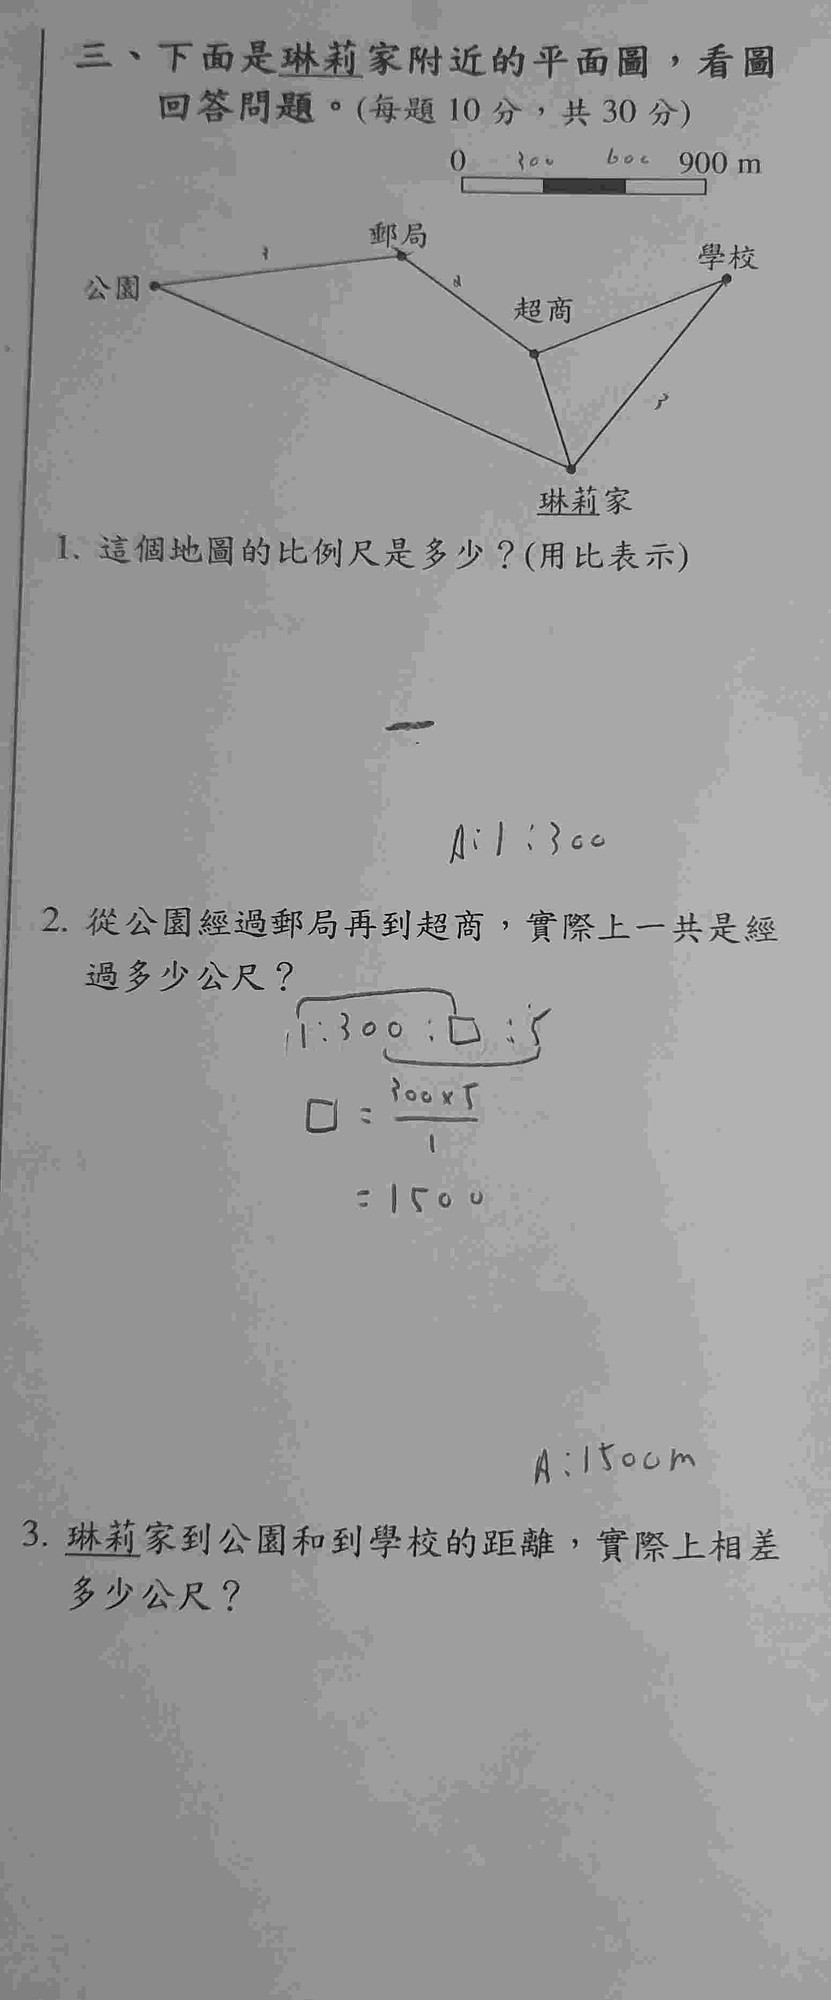 三、下面是琳莉家附近的平面圖，看圖
回答問題。(每題 10 分，共 30 分)
0 300 600 900 m
郵局
3
公園
2
學校
超商
3
琳莉家
1. 這個地圖的比例尺是多少？(用比表示)
A:1:300
2. 從公園經過郵局再到超商，實際上一共是經
過多少公尺？
1:300:□:5
□=300×5
1
=1500
A:1500m
3. 琳莉家到公園和到學校的距離，實際上相差
多少公尺？